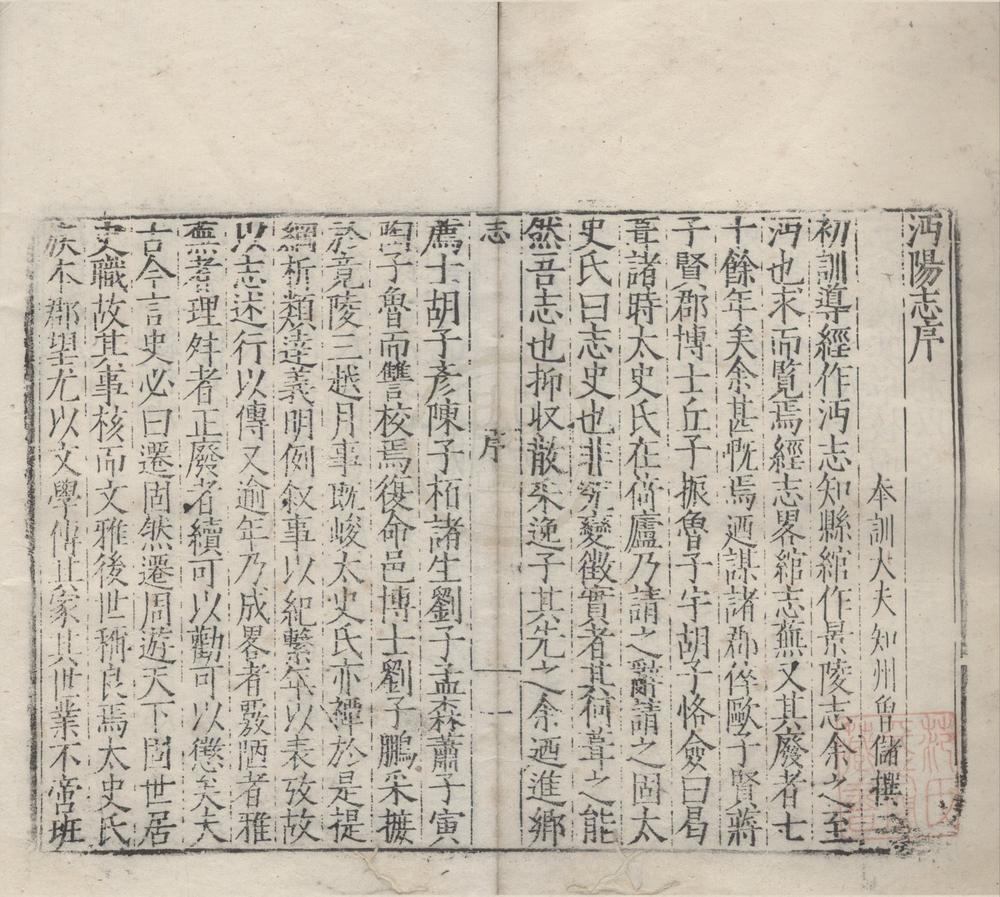 沔陽志序
奉訓大夫知州曾儲撰
初訓導經作沔志知縣綰作景陵志余之至
沔也求而覧焉經志畧綰志蕪又其廢者七
十餘年矣余甚慨焉迺謀諸郡倅歐子賢蔣
子賢郡博士丘子振魯子宇胡子恪僉曰曷
葺諸時太史氏在倚廬乃請之辭請之固太
史氏曰志史也非窮變徵實者其何葺之能
然吾志也抑収散采逸子其先之余迺進鄉
志 序 一
薦士胡子彥陳子栢諸生劉子孟森蕭子寅
陶子魯而讐校焉復命邑博士劉子鵬采摭
於竟陵三越月事既峻太史氏亦禫於是提
綱析類達義明例叙事以紀繫年以表攷故
以志述行以傳又逾年乃成畧者覈陋者雅
蕪者理舛者正廢者續可以勸可以懲矣夫
古今言史必曰遷固然遷周遊天下固世居
史職故其事核而文雅後世稱良焉太史氏
族本郡望尤以文學傳其家其世業不啻班